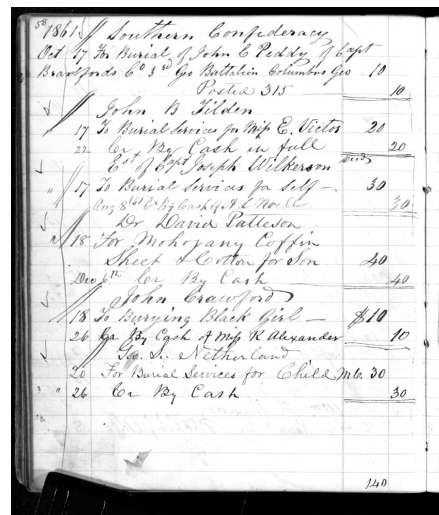 58
1861 // Southern Confederacy
Oct 17 For Burial of John C Peddy of Capt
Brantfords Co 3rd Geo Battalion Columbus Geo 10
Posted 315 10
John B Tilden
17 To Burial Services for Miss E. Victor 20
22 Cr, By Cash in full 20
Est of Capt Joseph Wilkerson Decd
" 17 To Burial Services for Self — 30
Aug 8 61 Cr By Cash of A L 30
Dr David Patteson
" 18 For Mohogany Coffin
Sheet & Cotton for Son 40
Dec 6th Cr By Cash 40
John Crawford
18 To Burying Black Girl — $10
26 Cr. By Cash of Miss R Alexander 10
Geo. S. Netherland
20 For Burial Services for Child 30
" 26 Cr By Cash 30
140